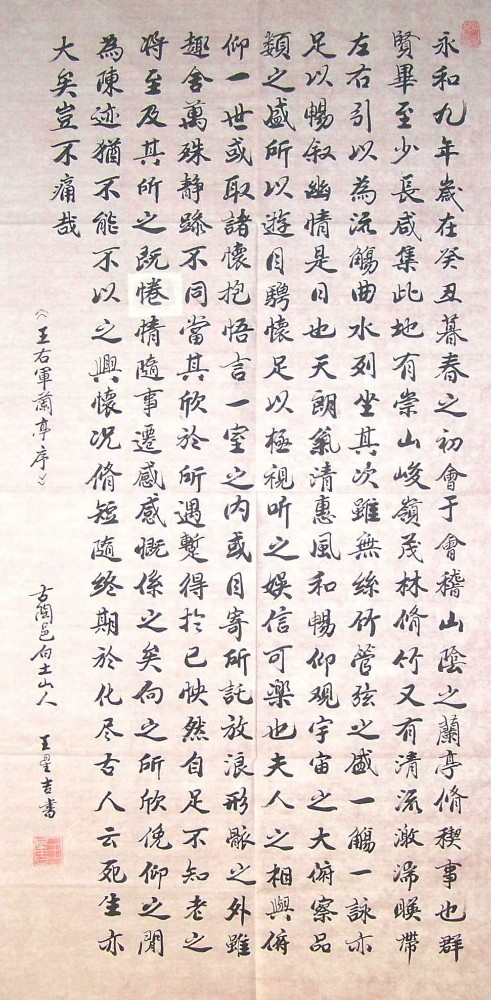 永和九年歲在癸丑暮春之初會于會稽山陰之蘭亭脩稧事也群
賢畢至少長咸集此地有崇山峻嶺茂林脩竹又有清流激湍暎帶
左右引以為流觴曲水列坐其次雖無絲竹管弦之盛一觴一詠亦
足以暢叙幽情是日也天朗氣清惠風和暢仰觀宇宙之大俯察品
類之盛所以遊目騁懷足以極視听之娛信可樂也夫人之相與俯
仰一世或取諸懷抱悟言一室之内或因寄所託放浪形骸之外雖
趣舍萬殊静躁不同當其欣於所遇蹔得於己怏然自足不知老之
将至及其所之既惓情隨事遷感感慨係之矣向之所欣俛仰之閒
為陳迹猶不能不以之興懷况脩短隨終期於化尽古人云死生亦
大矣豈不痛哉
《王右軍蘭亭序》
邑向土山人 王星吉書